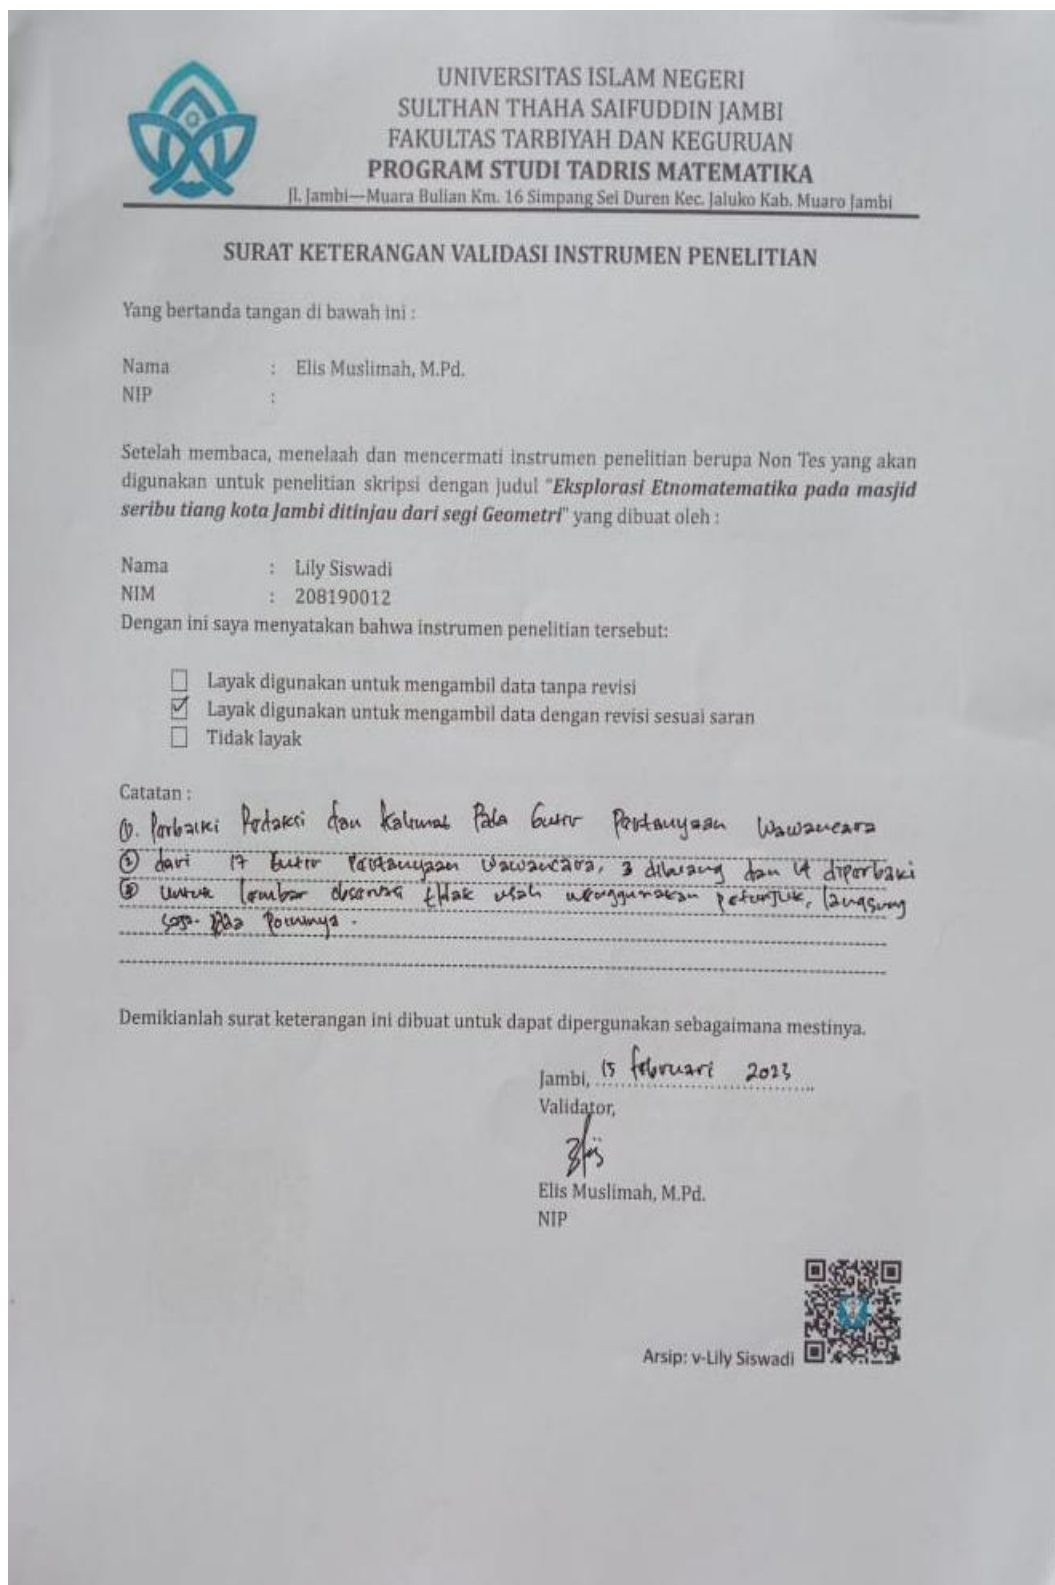 UNIVERSITAS ISLAM NEGERI
SULTHAN THAHA SAIFUDDIN JAMBI
FAKULTAS TARBIYAH DAN KEGURUAN
PROGRAM STUDI TADRIS MATEMATIKA
Jl. Jambi—Muara Bulian Km. 16 Simpang Sei Duren Kec. Jaluko Kab. Muaro Jambi
SURAT KETERANGAN VALIDASI INSTRUMEN PENELITIAN
Yang bertanda tangan di bawah ini :
Nama : Elis Muslimah, M.Pd.
NIP :
Setelah membaca, menelaah dan mencermati instrumen penelitian berupa Non Tes yang akan
digunakan untuk penelitian skripsi dengan judul "Eksplorasi Etnomatematika pada masjid
seribu tiang kota Jambi ditinjau dari segi Geometri" yang dibuat oleh :
Nama : Lily Siswadi
NIM : 208190012
Dengan ini saya menyatakan bahwa instrumen penelitian tersebut:
Layak digunakan untuk mengambil data tanpa revisi
Layak digunakan untuk mengambil data dengan revisi sesuai saran
Tidak layak
Catatan :
1. Perbaiki Redaksi dan Kalimat Pada butir Pertanyaan Wawancara
2 dari 17 butir Pertanyaan Wawancara, 3 dibuang dan 14 diperbaiki
3 Untuk lembar observasi tidak usah menggunakan petunjuk, langsung
saja Pada Poinnya.
Demikianlah surat keterangan ini dibuat untuk dapat dipergunakan sebagaimana mestinya.
Jambi, 15 februari 2023
Validator,
Elis Muslimah, M.Pd.
NIP
Arsip: v-Lily Siswadi